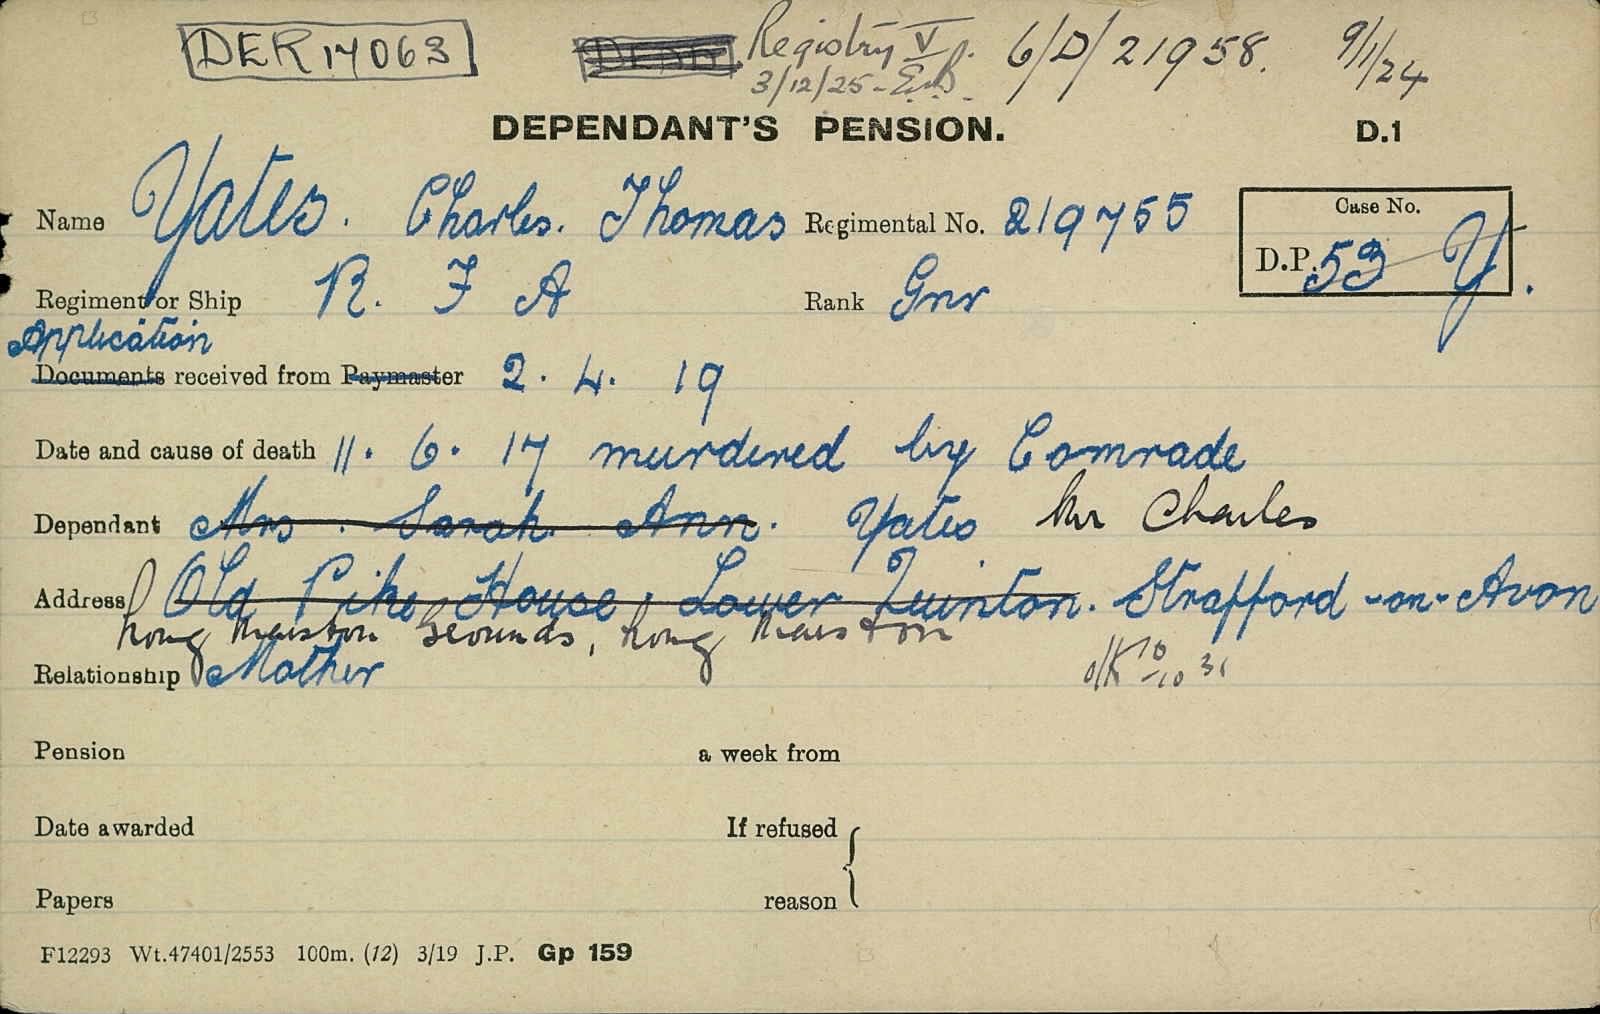 DER 17063 DEAD Registry V p. 6/D/21958. 9/1/24
3/12/25
DEPENDANT'S PENSION. D.1
Name Yates. Charles. Thomas Regimental No. 219755
Case No.
D.P. 53 Y.
Regiment or Ship R. F A Rank Gnr
Application
Documents received from Paymaster 2. 4. 19
Date and cause of death 11. 6. 17 murdered by Comrade
Dependant Mrs. Sarah Ann. Yates Mr Charles
Address Old Pike House, Lower Quinton. Strafford-on-Avon
Long Marston Grounds, Long Marston
Relationship Mother 10-10 31
Pension a week from
Date awarded If refused
Papers reason
F12293 Wt.47401/2553 100m. (12) 3/19 J.P. Gp 159